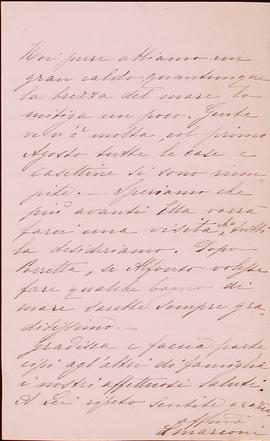 Noi pure abbiamo un
gran caldo quantunque
la brezza del mare lo
mitiga un poco. Gente
ve n'è molta, col primo
Agosto tutte le case e
Casettine si sono riem
pite. — Speriamo che
più avanti Ella vorrà
farci una visita, tutti
la desideriamo. Dopo
Porretta, se Alfonso volesse
fare qualche bagno di
mare sarebbe sempre gra
ditissimo.
Gradisca e faccia parte
cipi agl'altri di famiglia
i nostri affettuosi saluti.
A Lei ripeto sentite grazie
Marconi